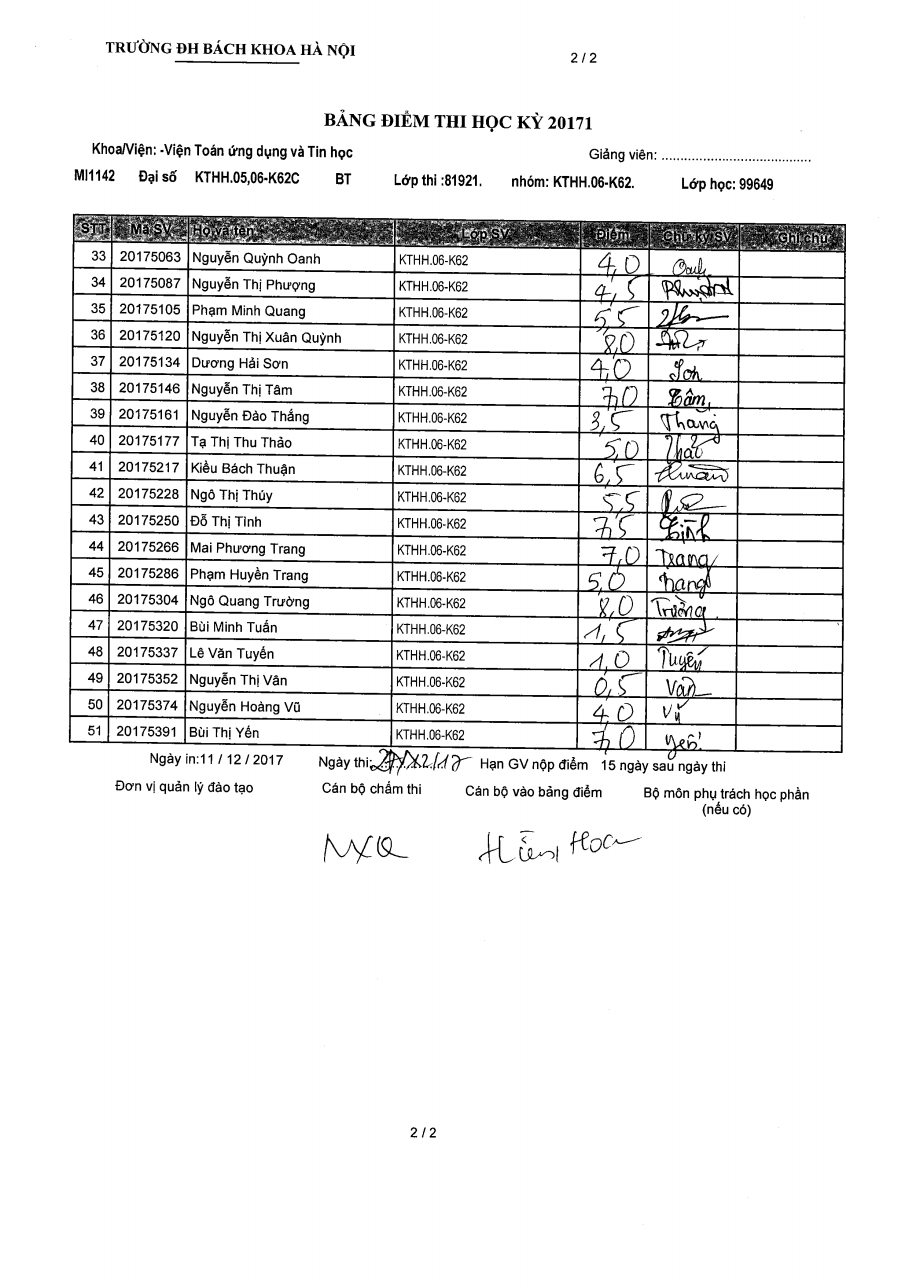 TRƯỜNG ĐH BÁCH KHOA HÀ NỘI
2 / 2
BẢNG ĐIỂM THI HỌC KỲ 20171
Khoa/Viện: -Viện Toán ứng dụng và Tin học Giảng viên: ........................................
MI1142 Đại số KTHH.05,06-K62C BT Lớp thi :81921. nhóm: KTHH.06-K62. Lớp học: 99649
STT Mã SV Họ và tên Lớp SV Điểm Chữ ký SV Ghi chú
33 20175063 Nguyễn Quỳnh Oanh KTHH.06-K62 4,0 Oanh
34 20175087 Nguyễn Thị Phượng KTHH.06-K62 4,5 Phượng
35 20175105 Phạm Minh Quang KTHH.06-K62 5,5
36 20175120 Nguyễn Thị Xuân Quỳnh KTHH.06-K62 8,0
37 20175134 Dương Hải Sơn KTHH.06-K62 4,0 Sơn
38 20175146 Nguyễn Thị Tâm KTHH.06-K62 7,0 Tâm
39 20175161 Nguyễn Đào Thắng KTHH.06-K62 3,5 Thắng
40 20175177 Tạ Thị Thu Thảo KTHH.06-K62 5,0 Thảo
41 20175217 Kiều Bách Thuận KTHH.06-K62 6,5 Thuận
42 20175228 Ngô Thị Thúy KTHH.06-K62 5,5
43 20175250 Đỗ Thị Tình KTHH.06-K62 7,5 Tình
44 20175266 Mai Phương Trang KTHH.06-K62 7,0 Trang
45 20175286 Phạm Huyền Trang KTHH.06-K62 5,0 Trang
46 20175304 Ngô Quang Trường KTHH.06-K62 8,0 Trường
47 20175320 Bùi Minh Tuấn KTHH.06-K62 1,5
48 20175337 Lê Văn Tuyến KTHH.06-K62 1,0 Tuyến
49 20175352 Nguyễn Thị Vân KTHH.06-K62 0,5 Vân
50 20175374 Nguyễn Hoàng Vũ KTHH.06-K62 4,0 Vũ
51 20175391 Bùi Thị Yến KTHH.06-K62 7,0 Yến
Ngày in:11 / 12 / 2017 Ngày thi: Hạn GV nộp điểm 15 ngày sau ngày thi
Đơn vị quản lý đào tạo Cán bộ chấm thi Cán bộ vào bảng điểm Bộ môn phụ trách học phần
(nếu có)
NXQ
2 / 2